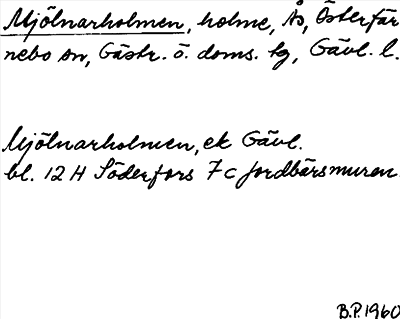 Mjölnarholmen, holme, Ås, Österfär
nebo sn, Gästr. ö. doms. tg, Gävl. l.
Mjölnarholmen, ek Gävl.
bl. 12 H Söderfors 7 c Jordbärsmuren
B.P. 1960